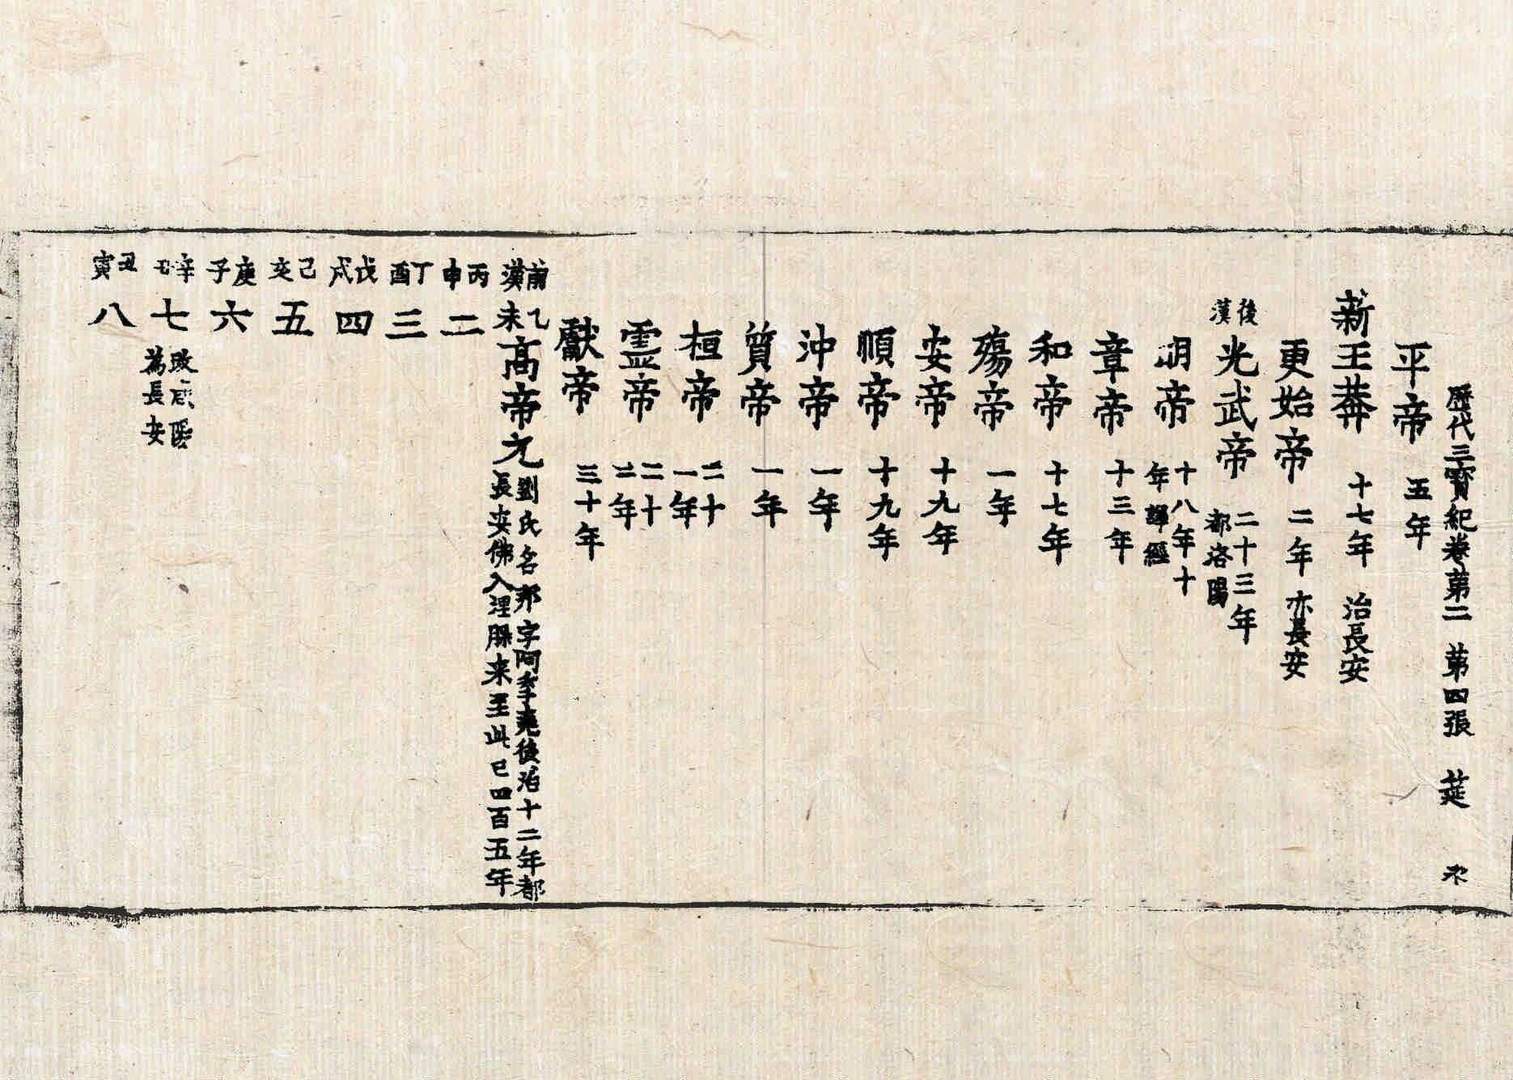 歷代三寳紀卷第二 第四張 莚
平帝 五年
新王莽 十七年 治長安
更始帝 二年 亦長安
後漢光武帝 二十三年都洛陽
明帝 十八年十年譯經
章帝 十三年
和帝 十七年
殤帝 一年
安帝 十九年
順帝 十九年
沖帝 一年
質帝 一年
桓帝 二十一年
霊帝 二十二年
獻帝 三十年
前漢 乙未 高帝元 劉氏名邦字阿季堯後治十二年都長安佛入涅槃来至此已四百五年
丙申 二
丁酉 三
戊戌 四
己亥 五
庚子 六
辛丑 七 改咸陽為長安
寅 八